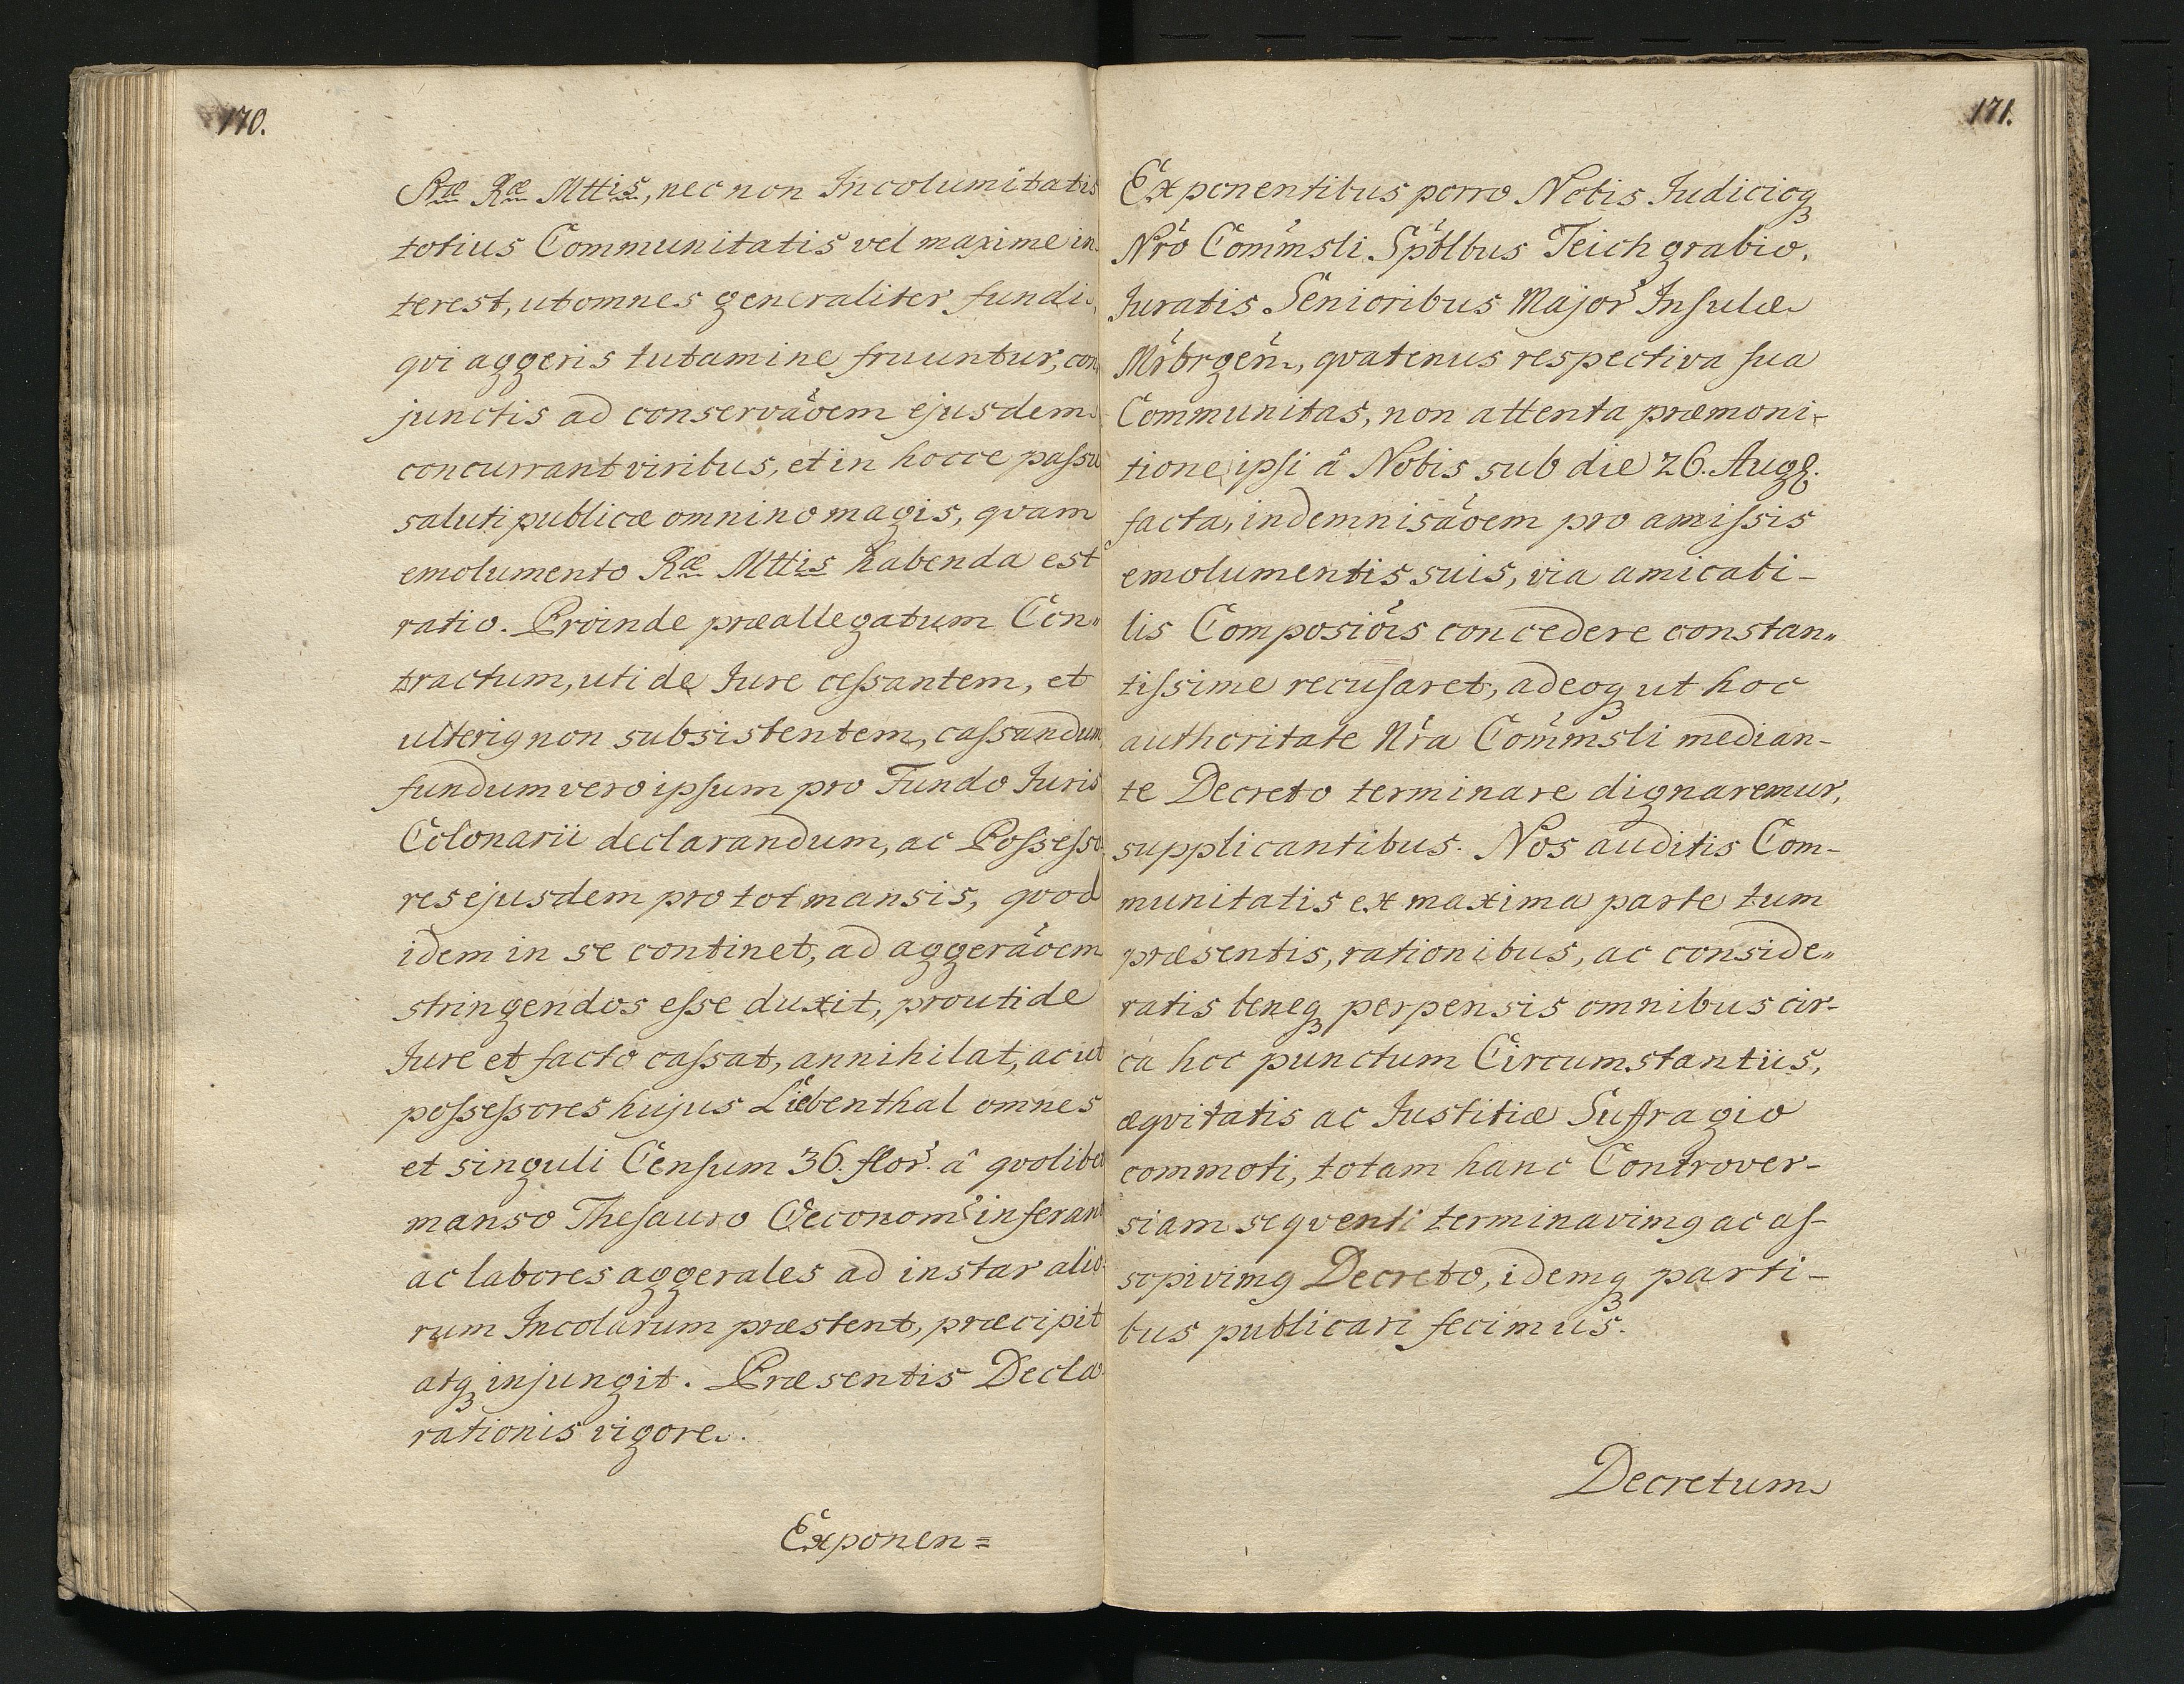 170.
Sræ Ræ Mttis, nec non Incolumitatis
totius Communitatis vel maxime in-
terest, ut omnes generaliter fundi,
qvi aggeris tutamine fruuntur, con-
junctis ad conservãoem ejusdem
concurrant viribus, et in hocce passu
saluti publicæ omnino magis, qvam
emolumento Ræ Mttis habenda est
ratio. Proinde præallegatum Con„
tractum, uti de Jure cessantem, et
ulteriq non subsistentem, cassandum,
fundum vero ipsum pro Fundo Juris
Colonarii declarandum, ac Possesso-
res ejusdem pro tot mansis, qvod
idem in se continet, ad aggerãoem
stringendos esse duxit, prouti de
Jure et facto cassat, annihilat, ac ut
possessores hujus Liebenthal omnes
et singuli Censum 36. flor. â qvolibet
manso Thesauro Oeconom inferant
ac labores aggerales ad instar alio-
rum Incolarum præstent, præcipit
atq injungit. Præsentis Decla-
rationis vigore.
Exponen=
171.
Exponentibus porro Nobis Judicioq
Nrõ Com̃msli Spõlbus Teichgrabio,
Juratis Senioribus Major Insulæ
Mr̃brgen, qvatenus respectiva sua
Communitas, non attenta præmoni-
tione ipsi â Nobis sub die 26. Augq.
facta, indemnisãoem pro amissis
emolumentis suis, via amicabi-
lis Composiõis concedere constan„
tissime recusaret, adeoq ut hoc
authoritate Nrã Com̃msli median-
te Decreto terminare dignaremur,
supplicantibus. Nos auditis Com-
munitatis ex maxima parte tum
præsentis, rationibus, ac conside„
ratis beneq perpensis omnibus cir-
ca hoc punctum Circumstantiis,
æqvitatis ac Justitiæ Suffragio
commoti, totam hanc Controver-
siam seqventi terminavimq ac as-
sopivimq Decreto, idemq parti-
bus publicari fecimus.
Decretum